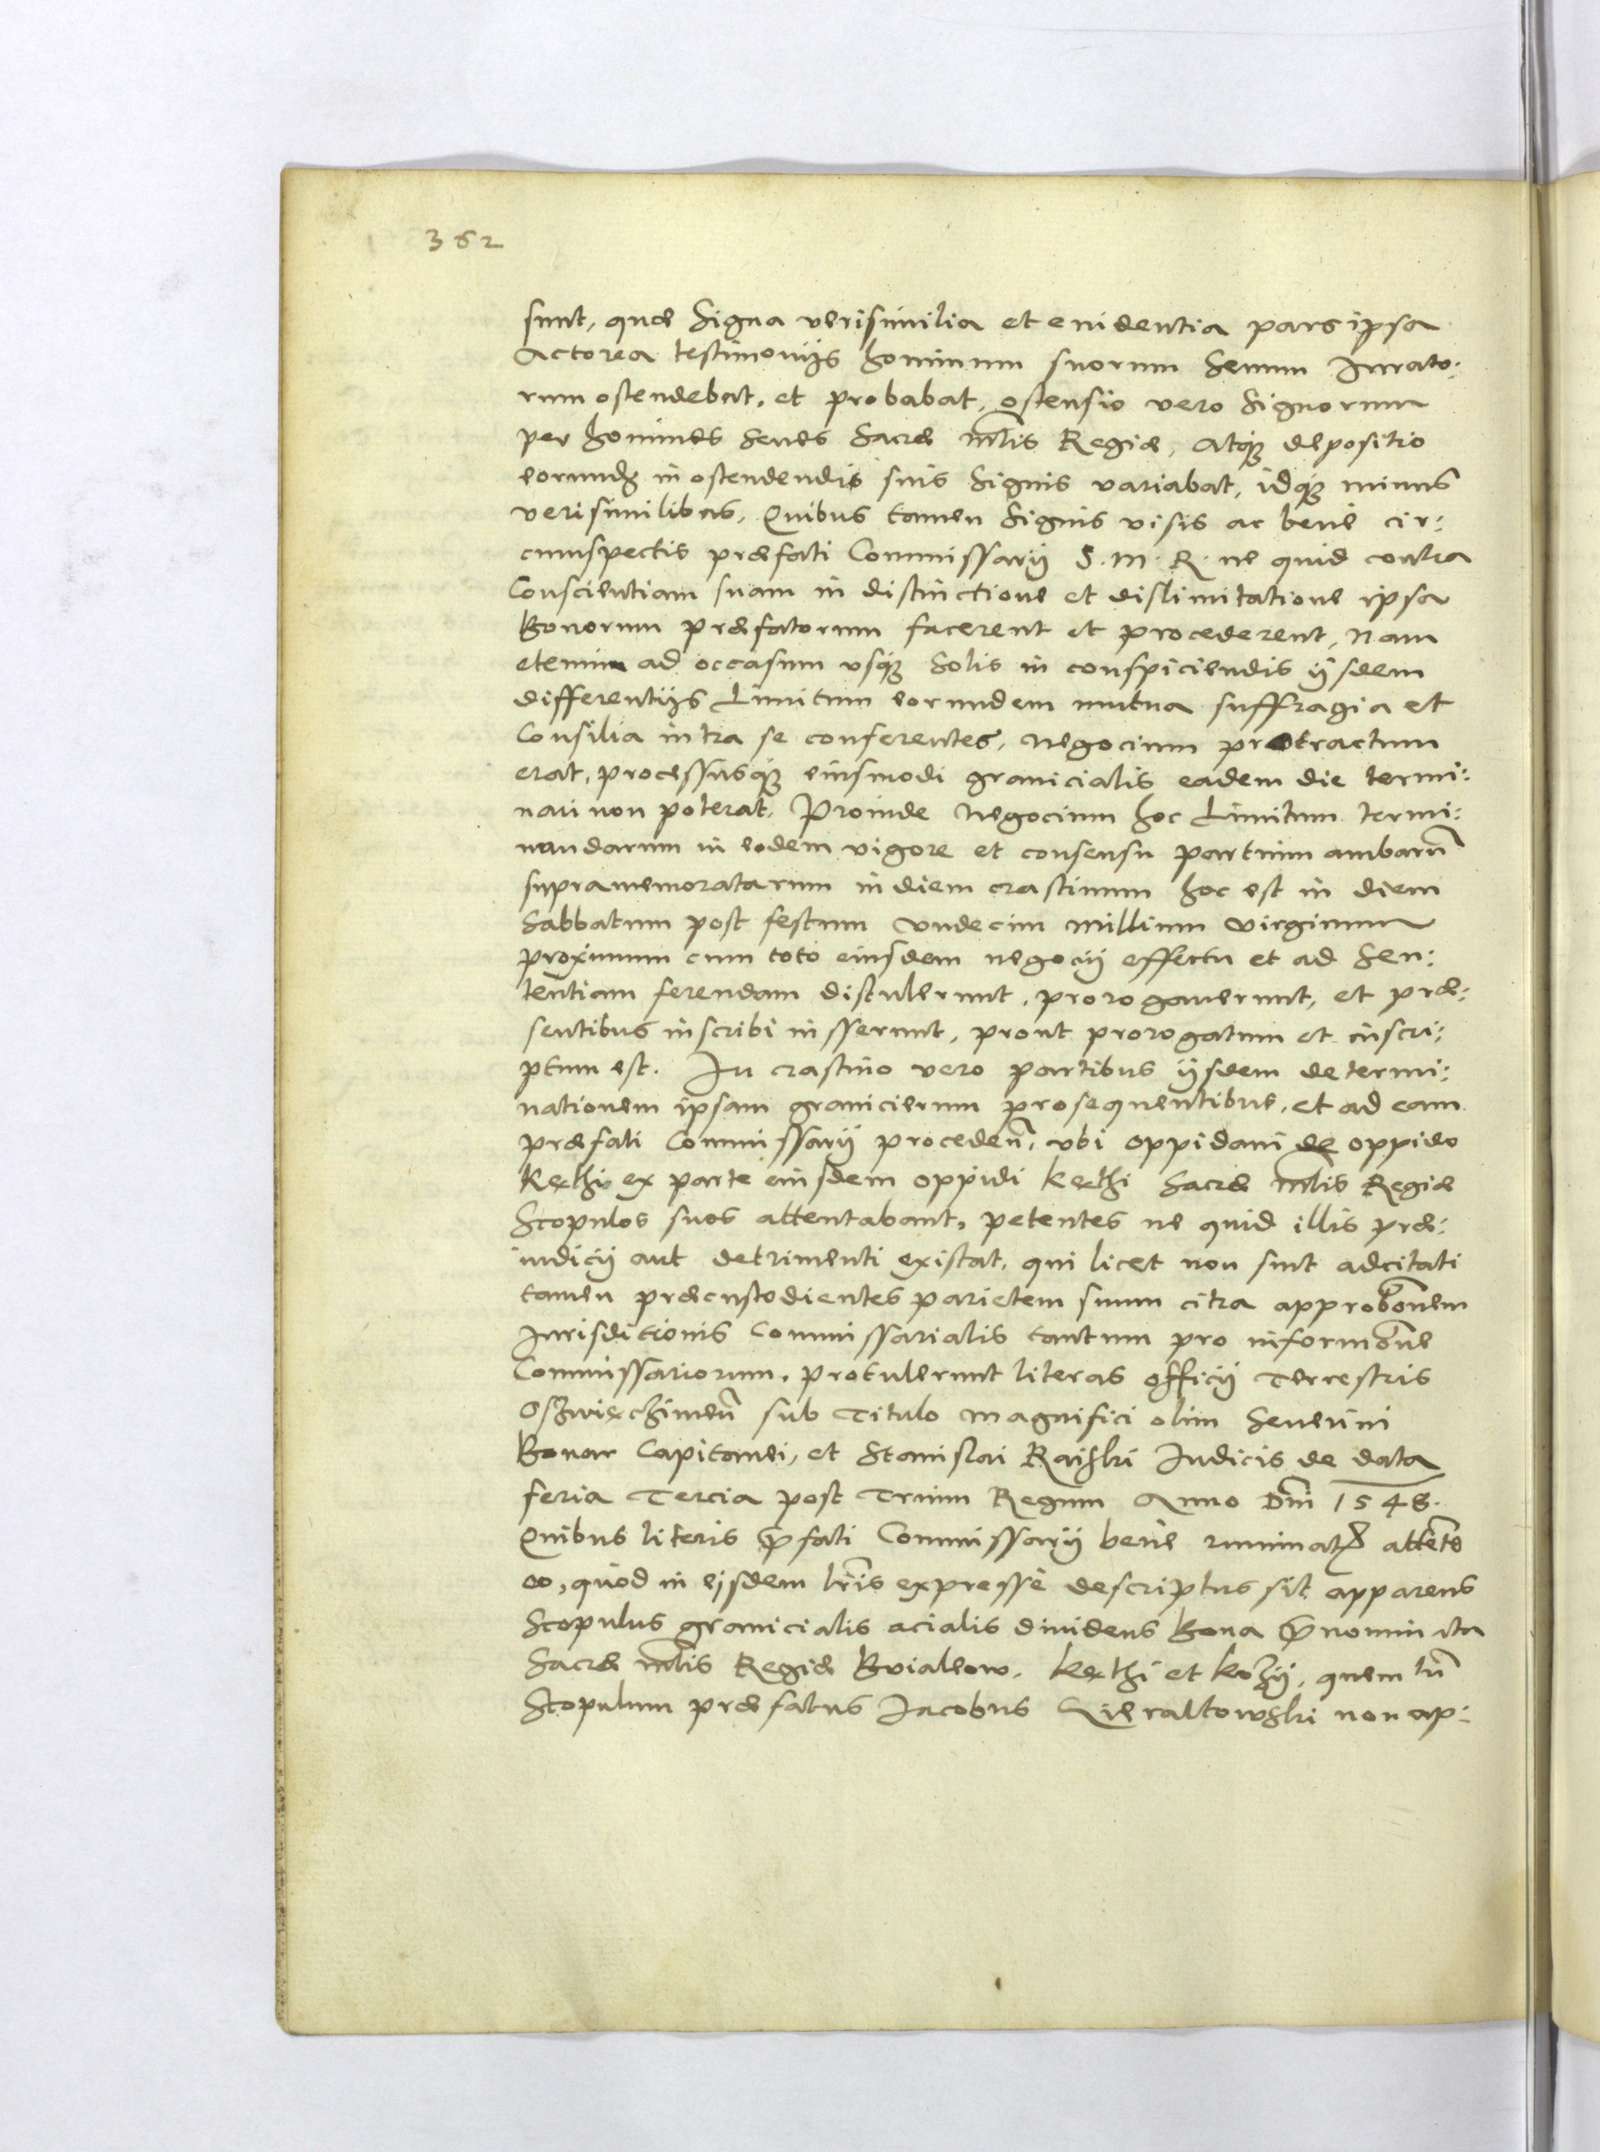 362
sunt, quæ signa verisimilia et euidentia pars ipsa
Actorea testimonijs hominum suorum senum Iurato:
rum ostendebat, et probabat, ostensio vero signorum
per homines senes Sacræ Mtis Regiæ, atq3 depositio
eorund3 in ostendendis suis signis variabat, idq3 minus
verisimilibus, Quibus tamen signis visis ac benè cir:
cumspectis præfati Commissarij S. M. R. ne quid contra
Conscientiam suam in distinctione et dislimitatione ipsa
Bonorum præfatorum facerent et procederent, Nam
etenim ad occasum vsq3 solis in conspiciendis ijsdem
differentijs Limitum eorundem mutua suffragia et
Consilia intra se conferentes, negocium protractum
erat, processusq3 eiusmodi granicialis eadem die termi:
nari non poterat. Proinde Negocium hoc Limitum termi:
nandarum in eodem vigore et consensu partium ambarū
supramemoratarum in diem crastinum hoc est in diem
Sabbatum post festum vndecim millium virginum
proximum cum toto eiusdem negocij effectu et ad sen:
tentiam ferendam distulerunt, prorogauerunt, et præ:
sentibus inscribi iusserunt, prout prorogatum et inscri:
ptum est. In crastino vero partibus ijsdem determi:
nationem ipsam granicierum prosequentibus, et ad eam
præfati Commissarij proceden̄, vbi oppidani de oppido
Kethi ex parte eiusdem oppidi Kethi Sacræ Mtis Regiæ
Scopulos suos attentabant, petentes ne quid illis præ:
iudicij aut detrimenti existat, qui licet non sint adcitati
tamen præcustodientes parietem suum citra approbōnem
Iurisditionis Commissarialis tantum pro informōne
Commissariorum, protulerunt literas officij Terrestris
Oszwieczimen̄ sub Titulo Magnifici olim Seuerini
Bonar Capitanei, et Stanislai Raiski Iudicis de data
feria Tercia post Trium Regum Anno Dn̄i 1548.
Quibus literis p̄fati Commissarij benè ruminat attēto
eo, quòd in eisdem lr̄is expressè descriptus sit apparens
Scopulus granicialis acialis diuidens Bona p̄nominata
Sacræ Mtis Regiæ Bvialow, Kethi et Kozij, quem tn̄
Scopulum præfatus Iacobus Gieraltowski non ap: